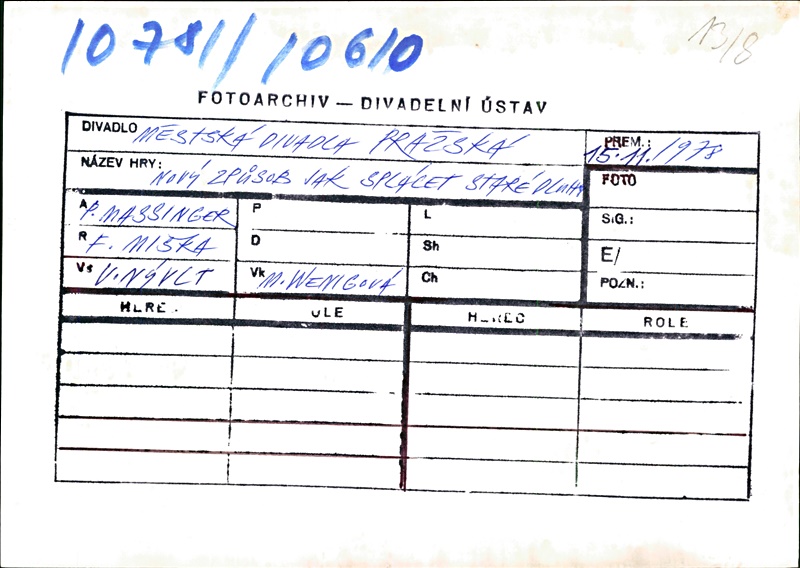 10781/ 10610
13/8
FOTOARCHIV — DIVADELNÍ ÚSTAV
DIVADLO MĚSTSKÁ DIVADLA PRAŽSKÁ
PREM.: 15.11./1978
NÁZEV HRY: NOVÝ ZPŮSOB JAK SPLÁCET STARÉ DLUHY
FOTO
A P. MASSINGER
P
L
SIG.:
R F. MIŠKA
D
Sh
E/
Vs V. NÝVLT
Vk M. WENIGOVÁ
Ch
POZN.:
HERE . OLE HEREC ROLE